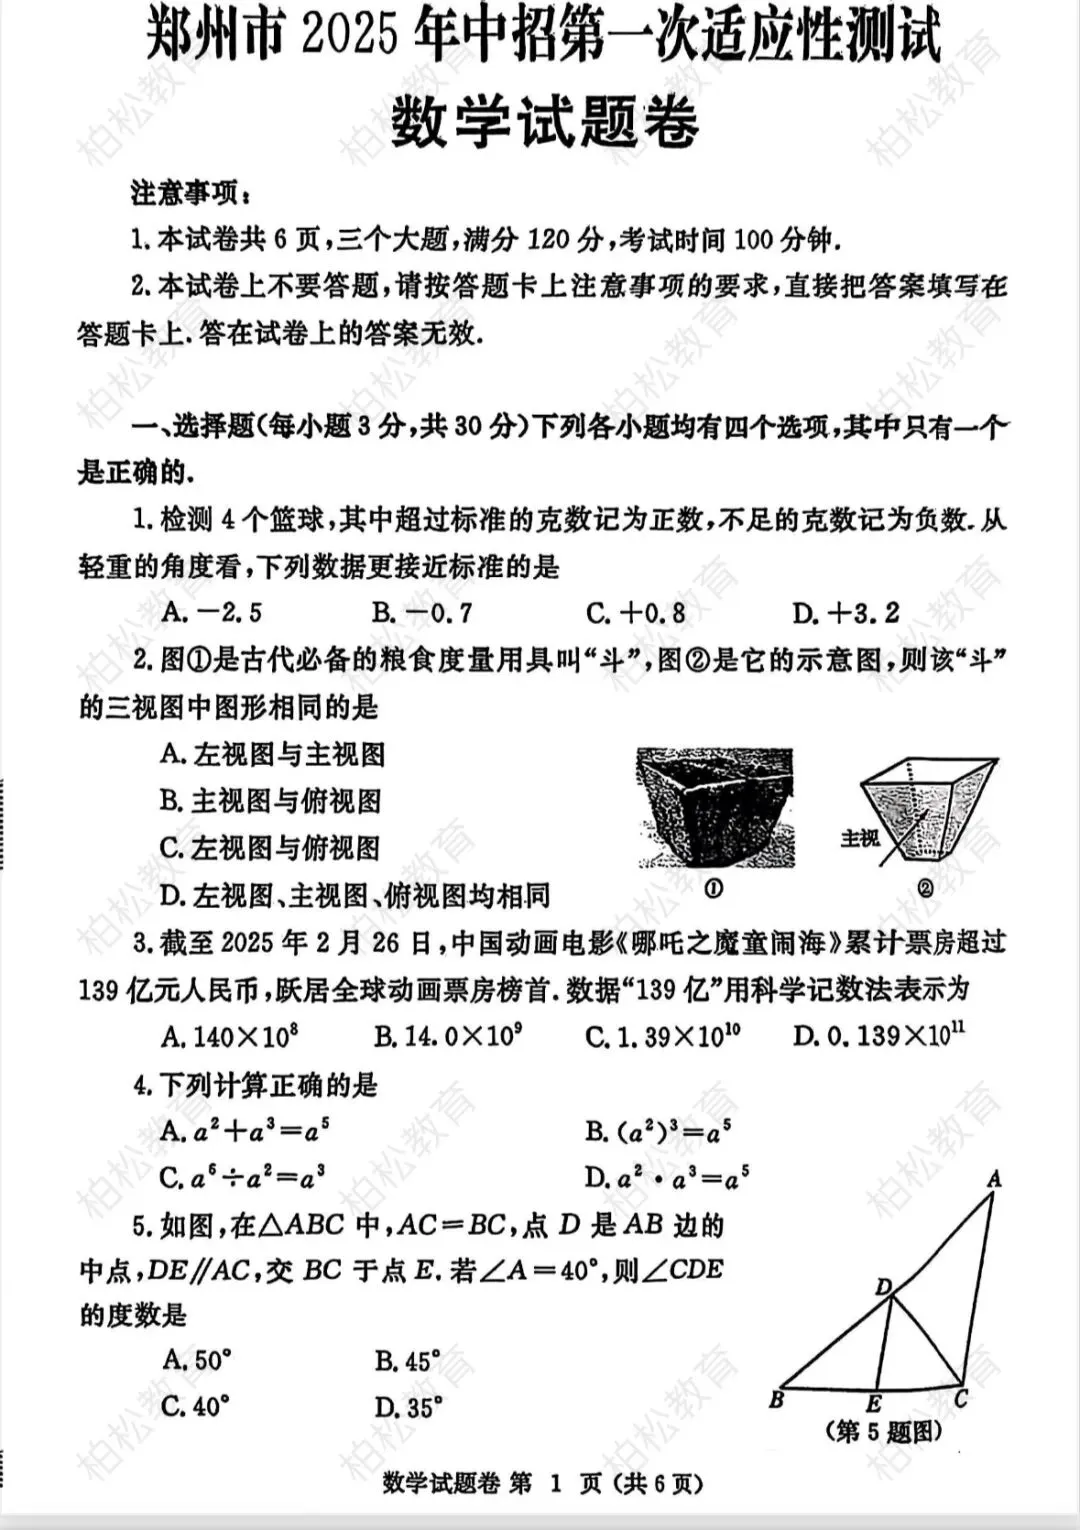 郑州市 2025 年中招第一次适应性测试
数学试题卷
注意事项:
1. 本试卷共 6 页,三个大题,满分 120 分,考试时间 100 分钟.
2. 本试卷上不要答题,请按答题卡上注意事项的要求,直接把答案填写在
答题卡上. 答在试卷上的答案无效.
一、选择题(每小题 3 分,共 30 分)下列各小题均有四个选项,其中只有一个
是正确的.
1. 检测 4 个篮球,其中超过标准的克数记为正数,不足的克数记为负数. 从
轻重的角度看,下列数据更接近标准的是
A. -2.5 B. -0.7 C. +0.8 D. +3.2
2. 图①是古代必备的粮食度量用具叫“斗”,图②是它的示意图,则该“斗”
的三视图中图形相同的是
A. 左视图与主视图
B. 主视图与俯视图
C. 左视图与俯视图
D. 左视图、主视图、俯视图均相同
主视
① ②
3. 截至 2025 年 2 月 26 日,中国动画电影《哪吒之魔童闹海》累计票房超过
139 亿元人民币,跃居全球动画票房榜首. 数据“139 亿”用科学记数法表示为
A. 140×10⁸ B. 14.0×10⁹ C. 1.39×10¹⁰ D. 0.139×10¹¹
4. 下列计算正确的是
A. a²+a³=a⁵ B. (a²)³=a⁵
C. a⁶÷a²=a³ D. a²·a³=a⁵
5. 如图,在△ABC 中,AC=BC,点 D 是 AB 边的
中点,DE∥AC,交 BC 于点 E. 若∠A=40°,则∠CDE
的度数是
A. 50° B. 45°
C. 40° D. 35°
A
D
B E C
(第 5 题图)
数学试题卷 第 1 页 (共 6 页)
柏松教育